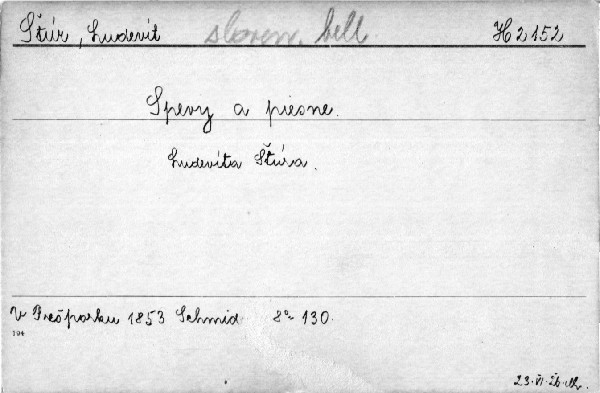 Štúr, Ludevít sloven. bell. H 2152
Spevy a piesne.
Ludevíta Štúra.
V Prešporku 1853 Schmid 8° 130.
194
23. VI. 26.